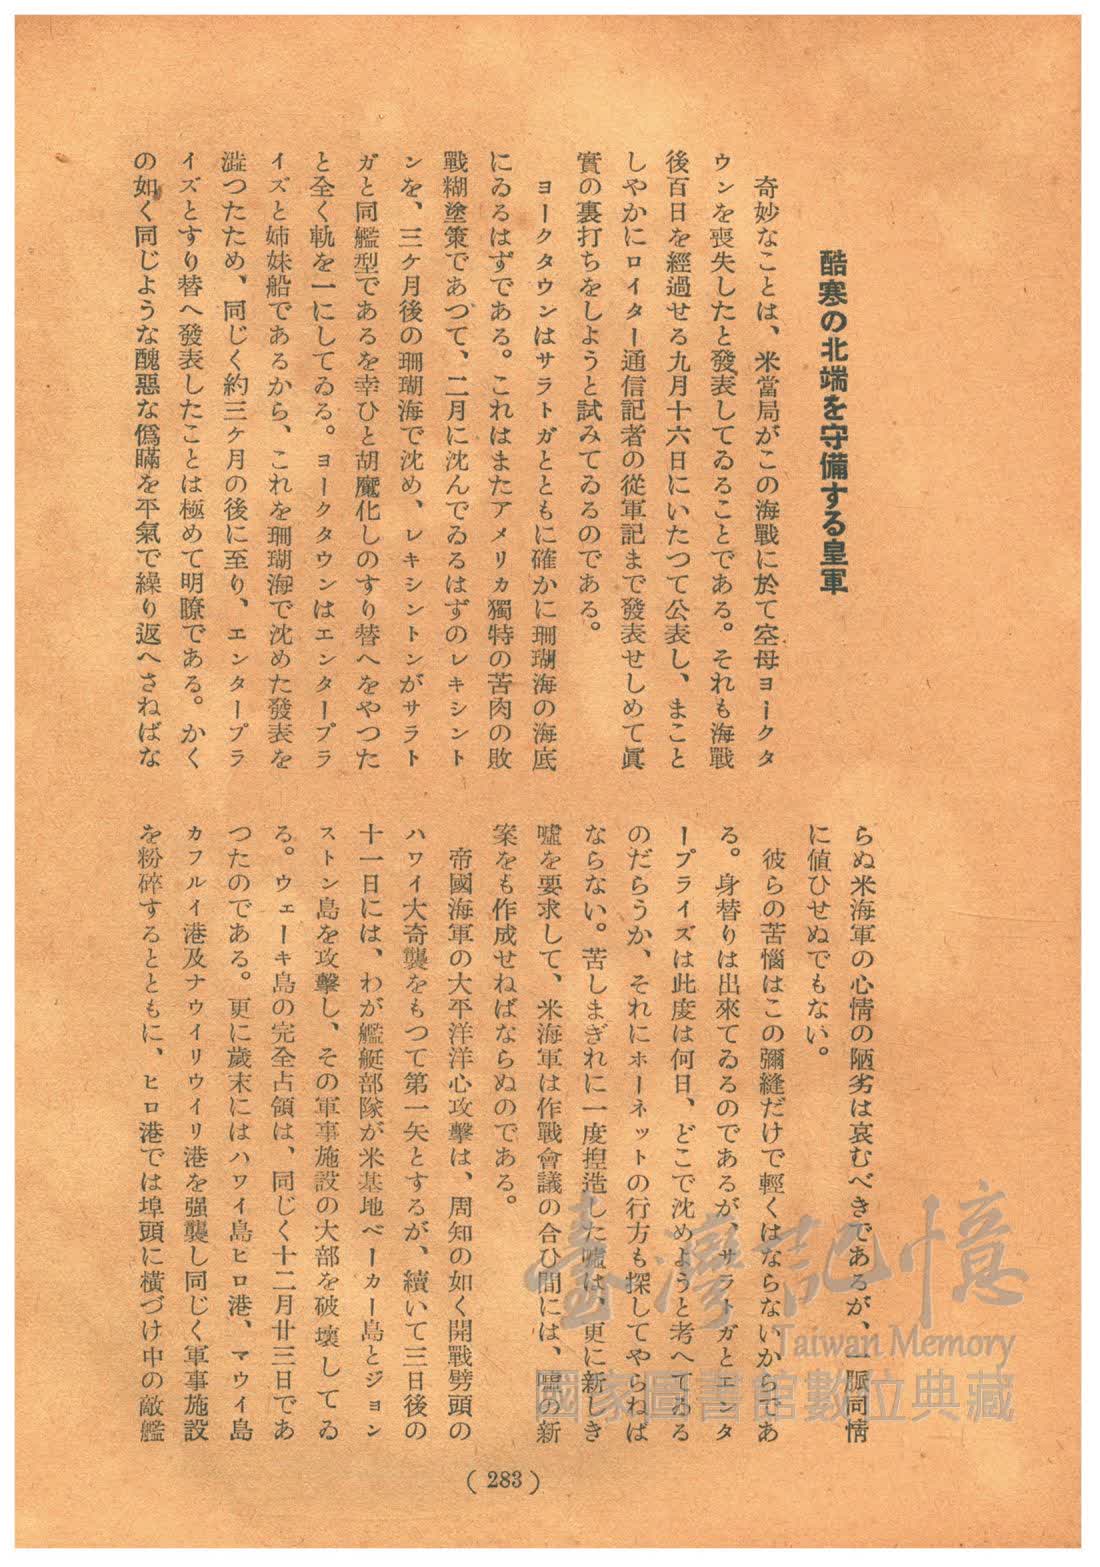 酷寒の北端を守備する皇軍
奇妙なことは、米當局がこの海戰に於て空母ヨークタ
ウンを喪失したと發表してゐることである。それも海戰
後百日を經過せる九月十六日にいたつて公表し、まこと
しやかにロイター通信記者の從軍記まで發表せしめて眞
實の裏打ちをしようと試みてゐるのである。
ヨークタウンはサラトガとともに確かに珊瑚海の海底
にゐるはずである。これはまたアメリカ獨特の苦肉の敗
戰糊塗策であつて、二月に沈んでゐるはずのレキシント
ンを、三ケ月後の珊瑚海で沈め、レキシントンがサラト
ガと同艦型であるを幸ひと胡魔化しのすり替へをやつた
と全く軌を一にしてゐる。ヨークタウンはエンタープラ
イズと姉妹船であるから、これを珊瑚海で沈めた發表を
澁つたため、同じく約三ケ月の後に至り、エンタープラ
イズとすり替へ發表したことは極めて明瞭である。かく
の如く同じような醜惡な僞瞞を平氣で繰り返へさねばな
らぬ米海軍の心情の陋劣は哀むべきであるが、一脈同情
に値ひせぬでもない。
彼らの苦惱はこの彌縫だけで輕くはならないからであ
る。身替りは出來てゐるのであるが、サラトガとエンタ
ープライズは此度は何日、どこで沈めようと考へてゐる
のだらうか、それにホーネットの行方も探してやらねば
ならない。苦しまぎれに一度揑造した嘘は、更に新しき
嘘を要求して、米海軍は作戰會議の合ひ間には、嘘の新
案をも作成せねばならぬのである。
帝國海軍の大平洋洋心攻擊は、周知の如く開戰劈頭の
ハワイ大奇襲をもつて第一矢とするが、續いて三日後の
十一日には、わが艦艇部隊が米基地ベーカー島とジョン
ストン島を攻擊し、その軍事施設の大部を破壞してゐ
る。ウェーキ島の完全占領は、同じく十二月廿三日であ
つたのである。更に歲末にはハワイ島ヒロ港、マウイ島
カフルイ港及ナウイリウイリ港を强襲し同じく軍事施設
を粉碎するとともに、ヒロ港では埠頭に橫づけ中の敵艦
(283)
臺灣記憶
Taiwan Memory
國家圖書館數位典藏